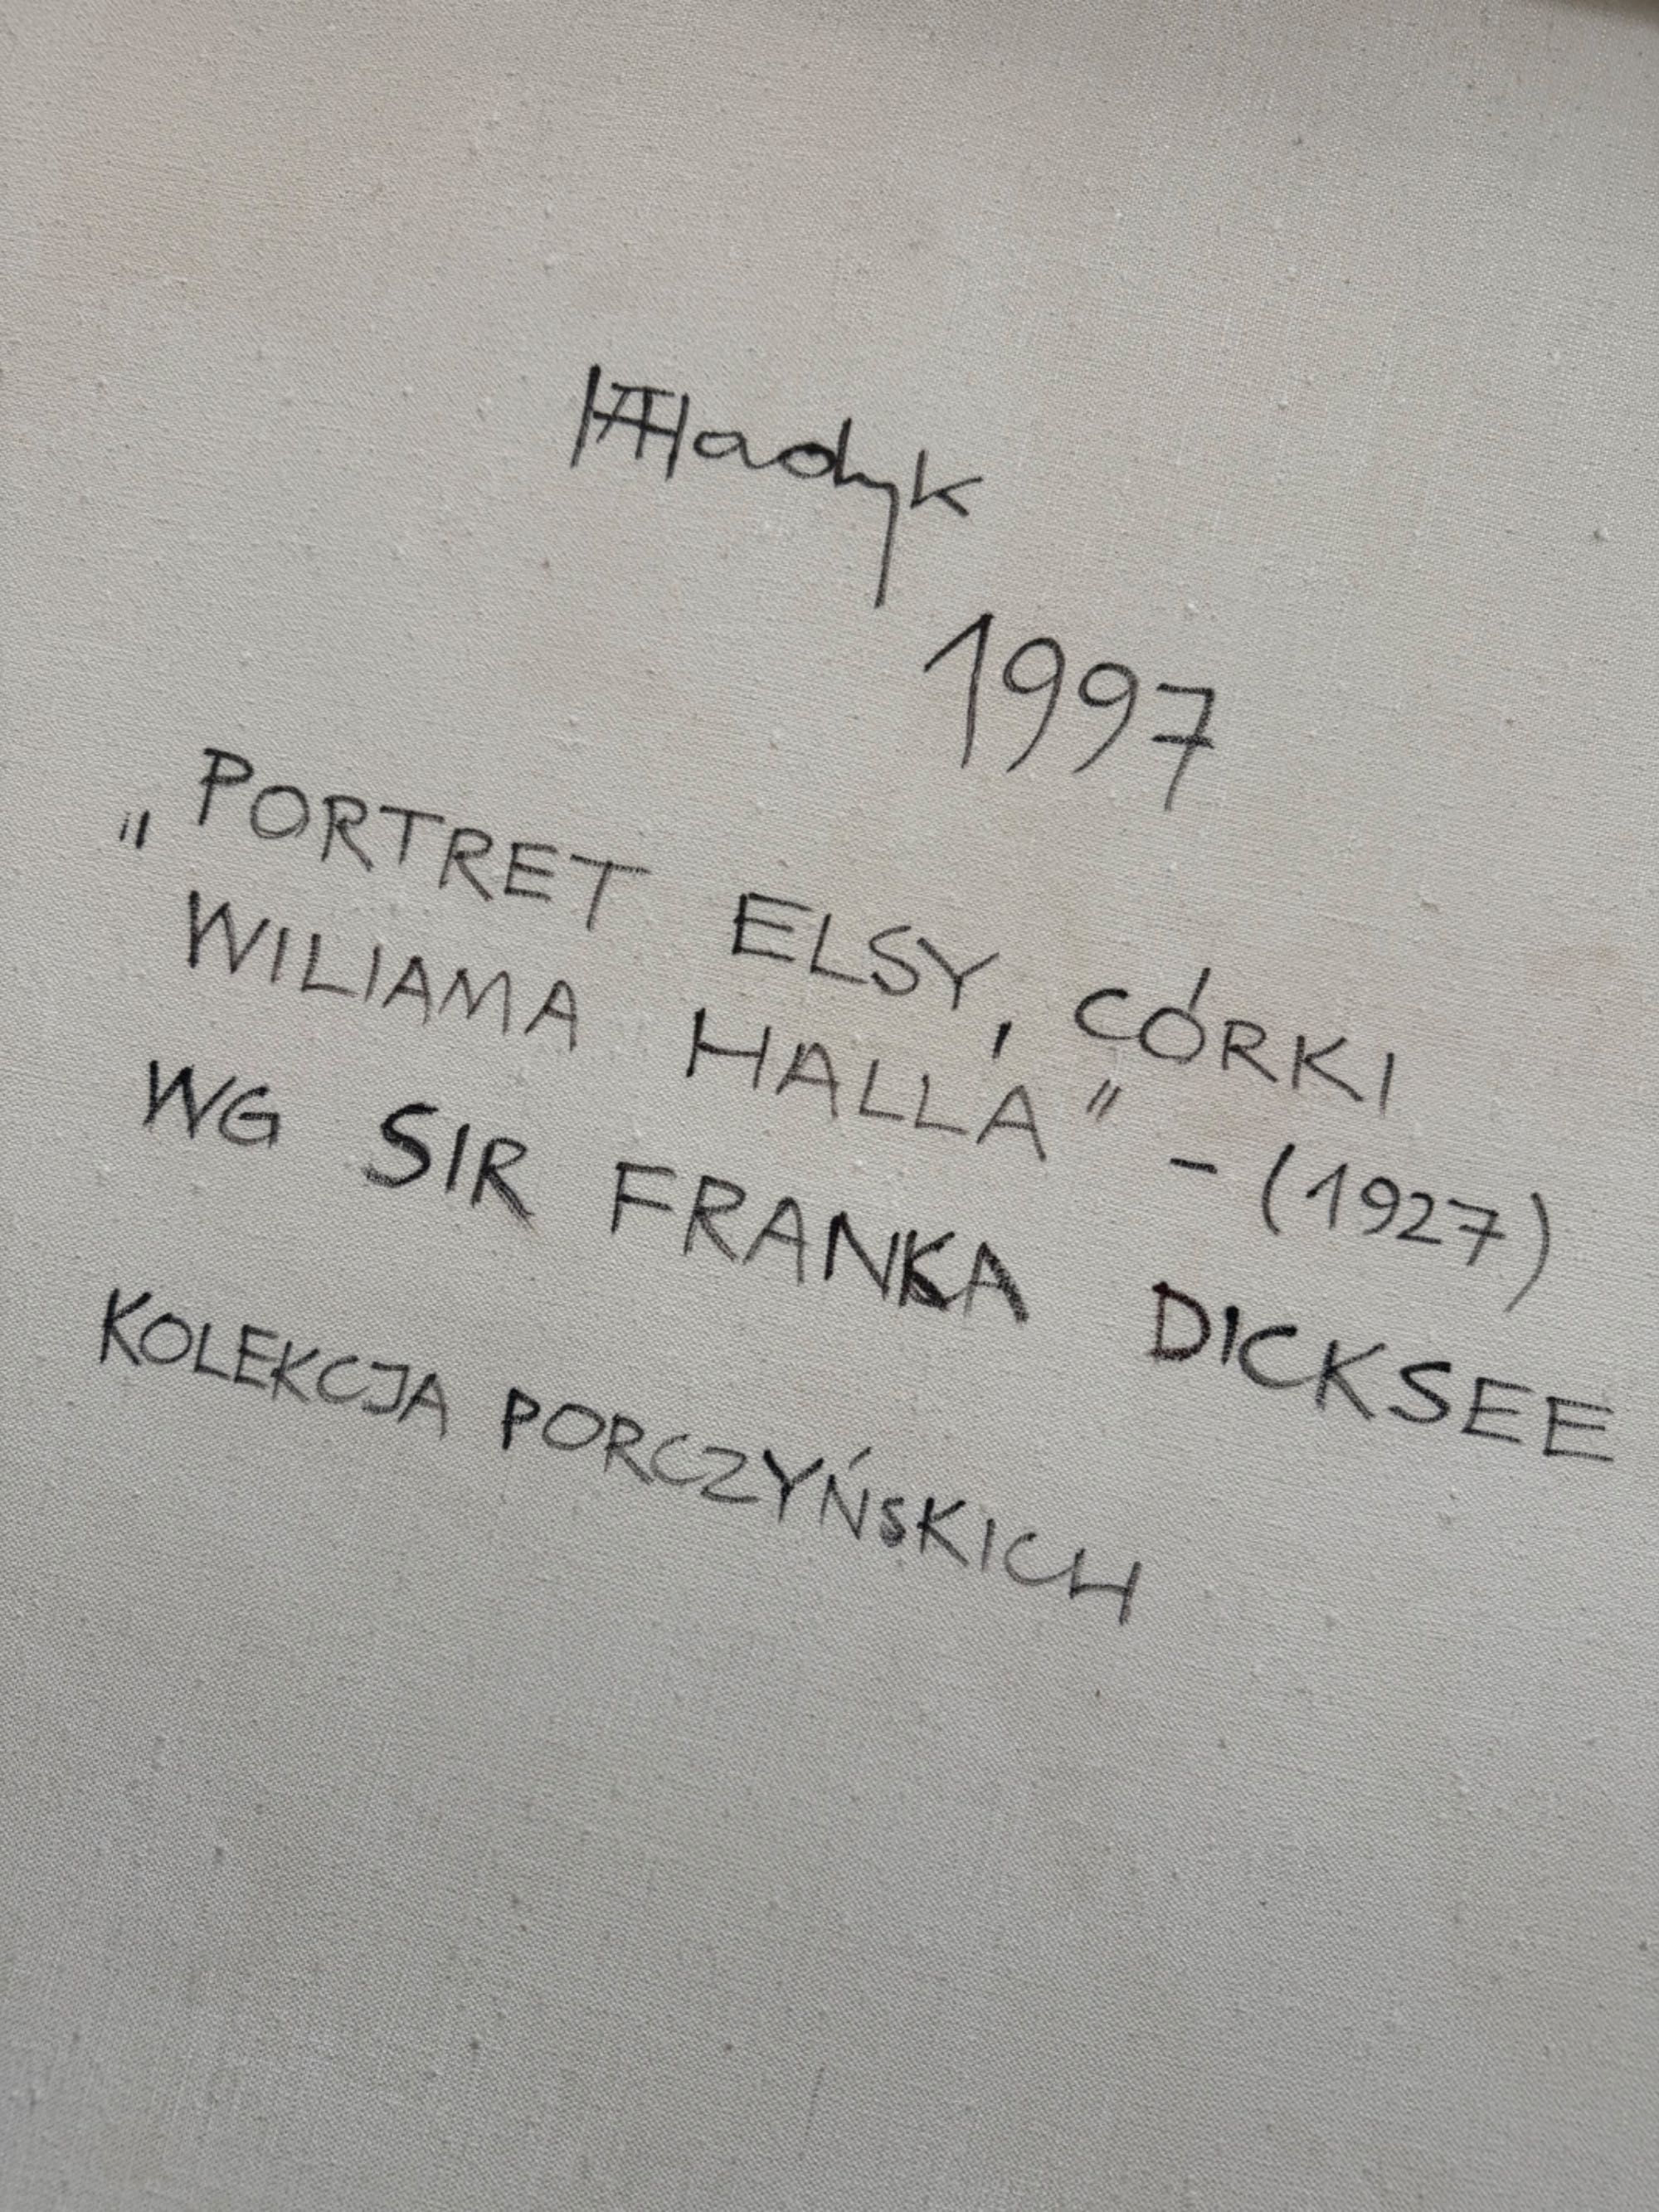 Hladyk
1997
„PORTRET ELSY, CÓRKI
WILIAMA HALLA" - (1927)
WG SIR FRANKA DICKSEE
KOLEKCJA PORCZYŃSKICH